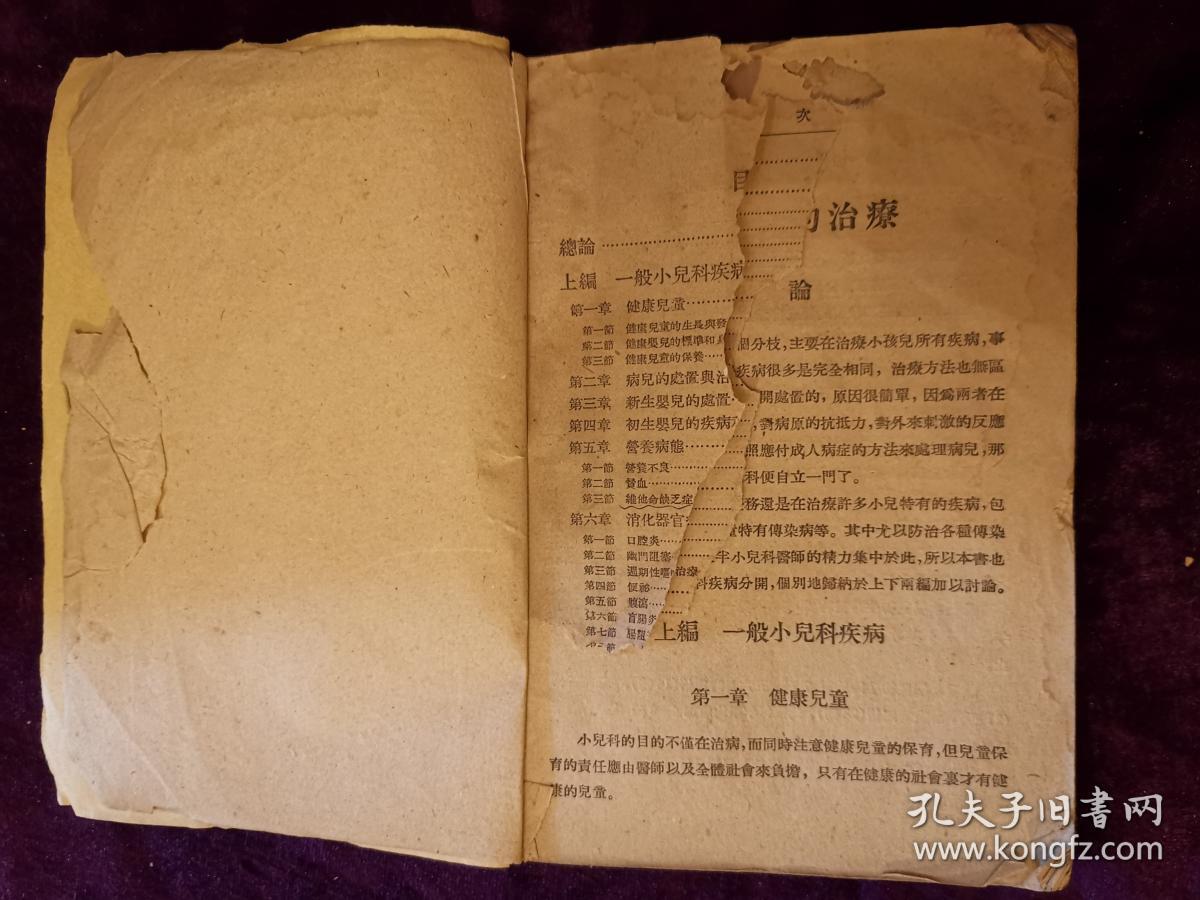 次
目
總論
上編 一般小兒科疾病
第一章 健康兒童
第一節 健康兒童的生長與發
第二節 健康嬰兒的標準和
第三節 健康兒童的保養
第二章 病兒的處置與治
第三章 新生嬰兒的處置
第四章 初生嬰兒的疾病
第五章 營養病態
第一節 營養不良
第二節 貧血
第三節 維他命缺乏症
第六章 消化器官
第一節 口腔炎
第二節 幽門阻塞
第三節 週期性嘔
第四節 便祕
第五節 腹瀉
第六節 盲腸炎
第七節
的治療
論
個分枝,主要在治療小孩兒所有疾病,事
疾病很多是完全相同,治療方法也無區
開處置的,原因很簡單,因為兩者在
,對病原的抗抵力,對外來刺激的反應
照應付成人病症的方法來處理病兒,那
科便自立一門了。
務還是在治療許多小兒特有的疾病,包
特有傳染病等。其中尤以防治各種傳染
半小兒科醫師的精力集中於此,所以本書也
科疾病分開,個別地歸納於上下兩編加以討論。
治療
上編 一般小兒科疾病
第一章 健康兒童
小兒科的目的不僅在治病,而同時注意健康兒童的保育,但兒童保
育的責任應由醫師以及全體社會來負擔,只有在健康的社會裏才有健
康的兒童。
孔夫子旧书网
www.kongfz.com